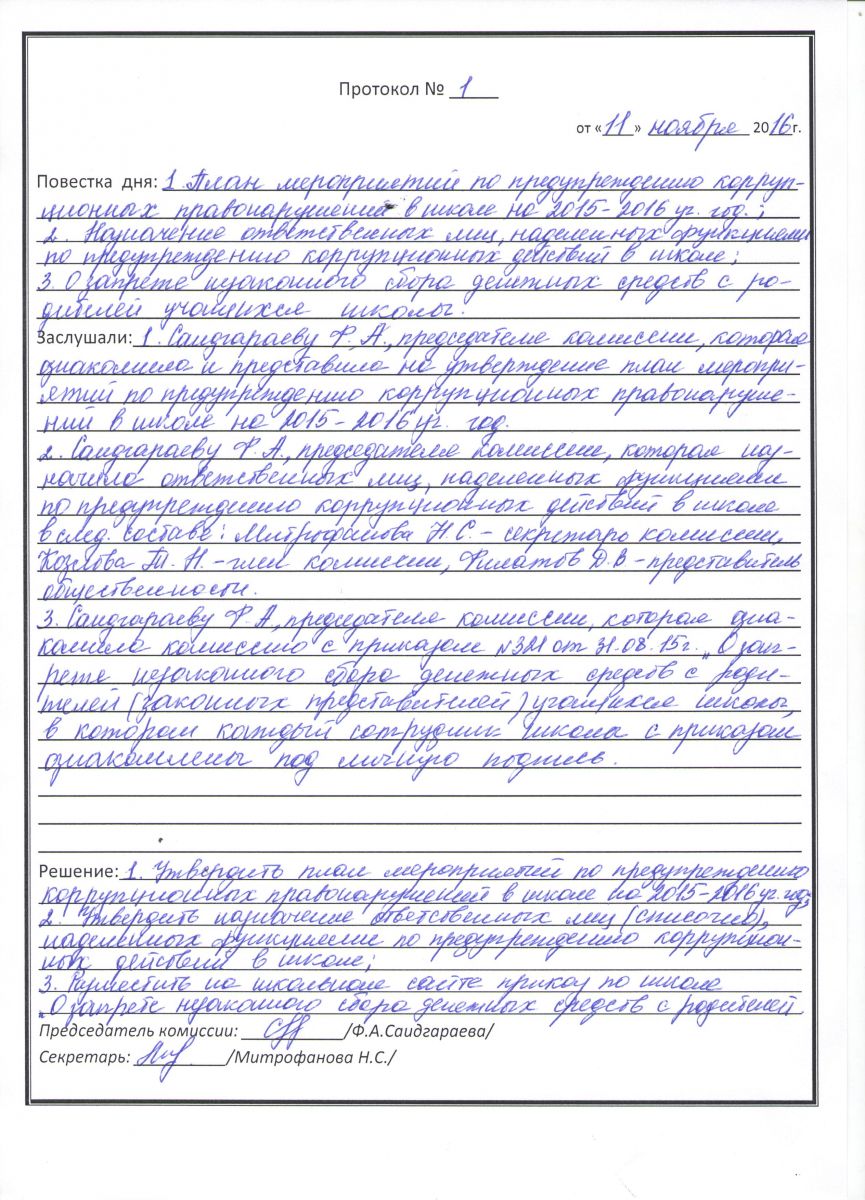 Протокол № 1
от «11» ноября 2016г.
Повестка дня: 1. План мероприятий по предупреждению корруп-
ционных правонарушений в школе на 2015-2016 уч. год.;
2. Назначение ответственных лиц, наделенных функциями
по предупреждению коррупционных действий в школе;
3. О запрете незаконного сбора денежных средств с ро-
дителей учащихся школы.
Заслушали: 1. Саидгараеву Ф.А., председателя комиссии, которая
ознакомила и представила на утверждение план меропри-
ятий по предупреждению коррупционных правонаруше-
ний в школе на 2015-2016 уч. год.
2. Саидгараеву Ф.А., председателя комиссии, которая наз-
начила ответственных лиц, наделенных функциями
по предупреждению коррупционных действий в школе
в след. составе: Митрофанова Н.С. - секретарь комиссии,
Козлова Т.Н. - член комиссии, Филатов Д.В - представитель
общественности.
3. Саидгараеву Ф.А, председателя комиссии, которая озна-
комила комиссию с приказом от 31.08.15г. „О зап-
рете незаконного сбора денежных средств с роди-
телей (законных представителей) учащихся школы,
в котором каждый сотрудник школы с приказом
ознакомлены под личную подпись.
Решение: 1. Утвердить план мероприятий по предупреждению
коррупционных правонарушений в школе на 2015-2016 уч. год;
2. Утвердить назначение ответственных лиц (списочно),
наделенных функциями по предупреждению коррупцион-
ных действий в школе;
3. Разместить на школьном сайте приказ по школе
„О запрете незаконного сбора денежных средств с родителей
Председатель комиссии: /Ф.А.Саидгараева/
Секретарь: /Митрофанова Н.С./